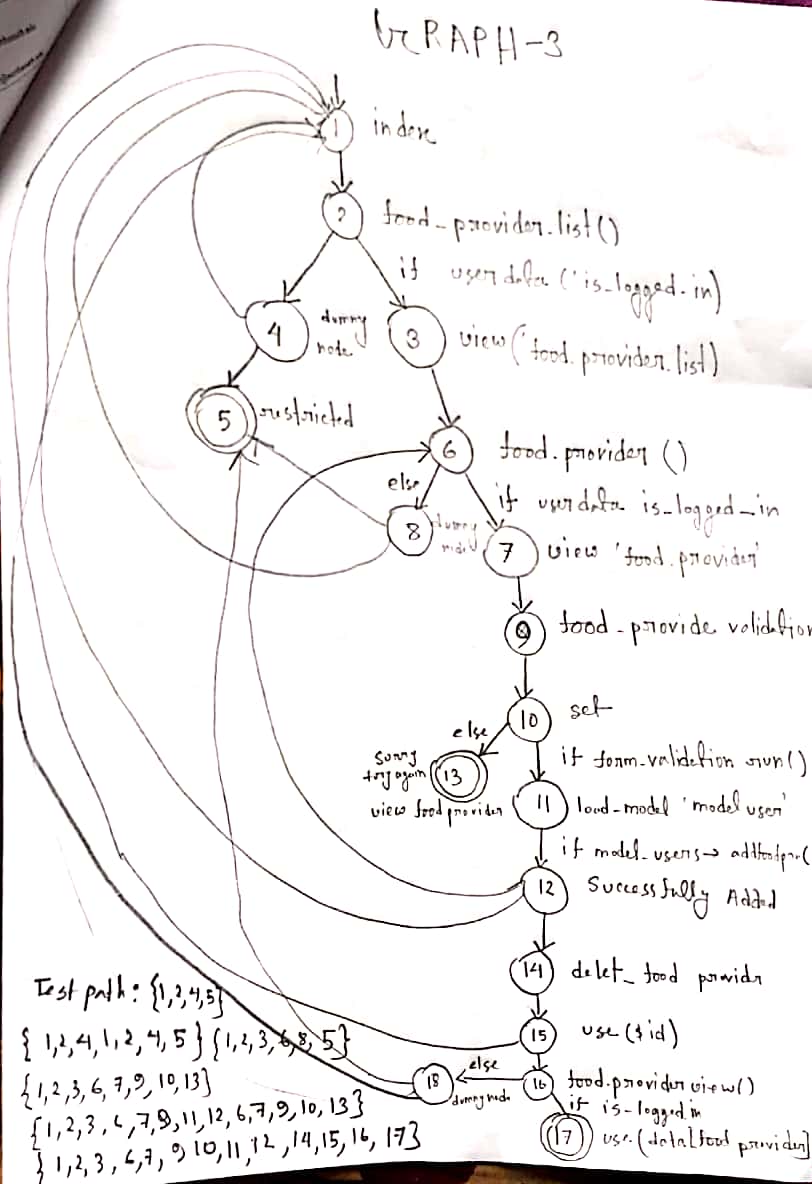 GRAPH-3
1 index
2 food_provider.list()
if userdata ('is_logged-in)
4 dummy node
3 view('food.provider.list)
5 restricted
6 food.provider ()
else
if userdata is_logged_in
8 dummy node
7 view 'food.provider'
9 food_provide validation
10 set
else
if form_validation run()
sorry try again
13
view food provider
11 load-model 'model user'
if model_users→
12 Successfully Added
14 delet_ food providr
15 use($id)
else
16 food.provider view()
18 dummy node
if is-logged.in
17
Test path: {1,2,4,5}
{ 1,2,4,1,2,4,5 } {1,2,3,6,8,5}
{1,2,3,6,7,9,10,13}
{1,2,3,6,7,9,11,12,6,7,9,10,13}
{ 1,2,3,6,7,9 10,11,12,14,15,16, 17}